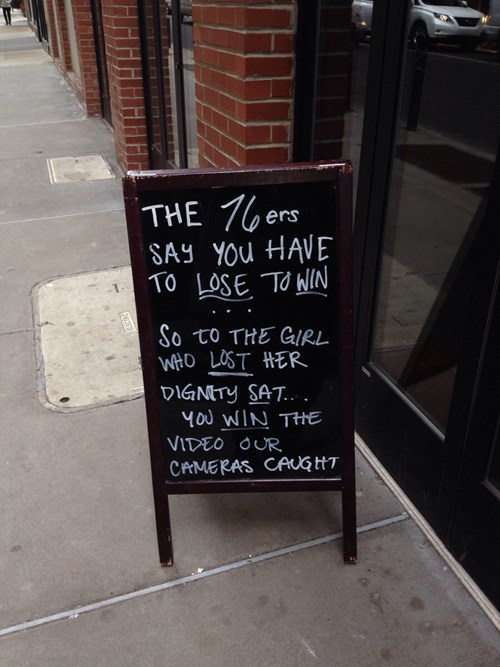 THE 76ers
SAY YOU HAVE
TO LOSE TO WIN
...
SO TO THE GIRL
WHO LOST HER
DIGNITY SAT....
YOU WIN THE
VIDEO OUR
CAMERAS CAUGHT